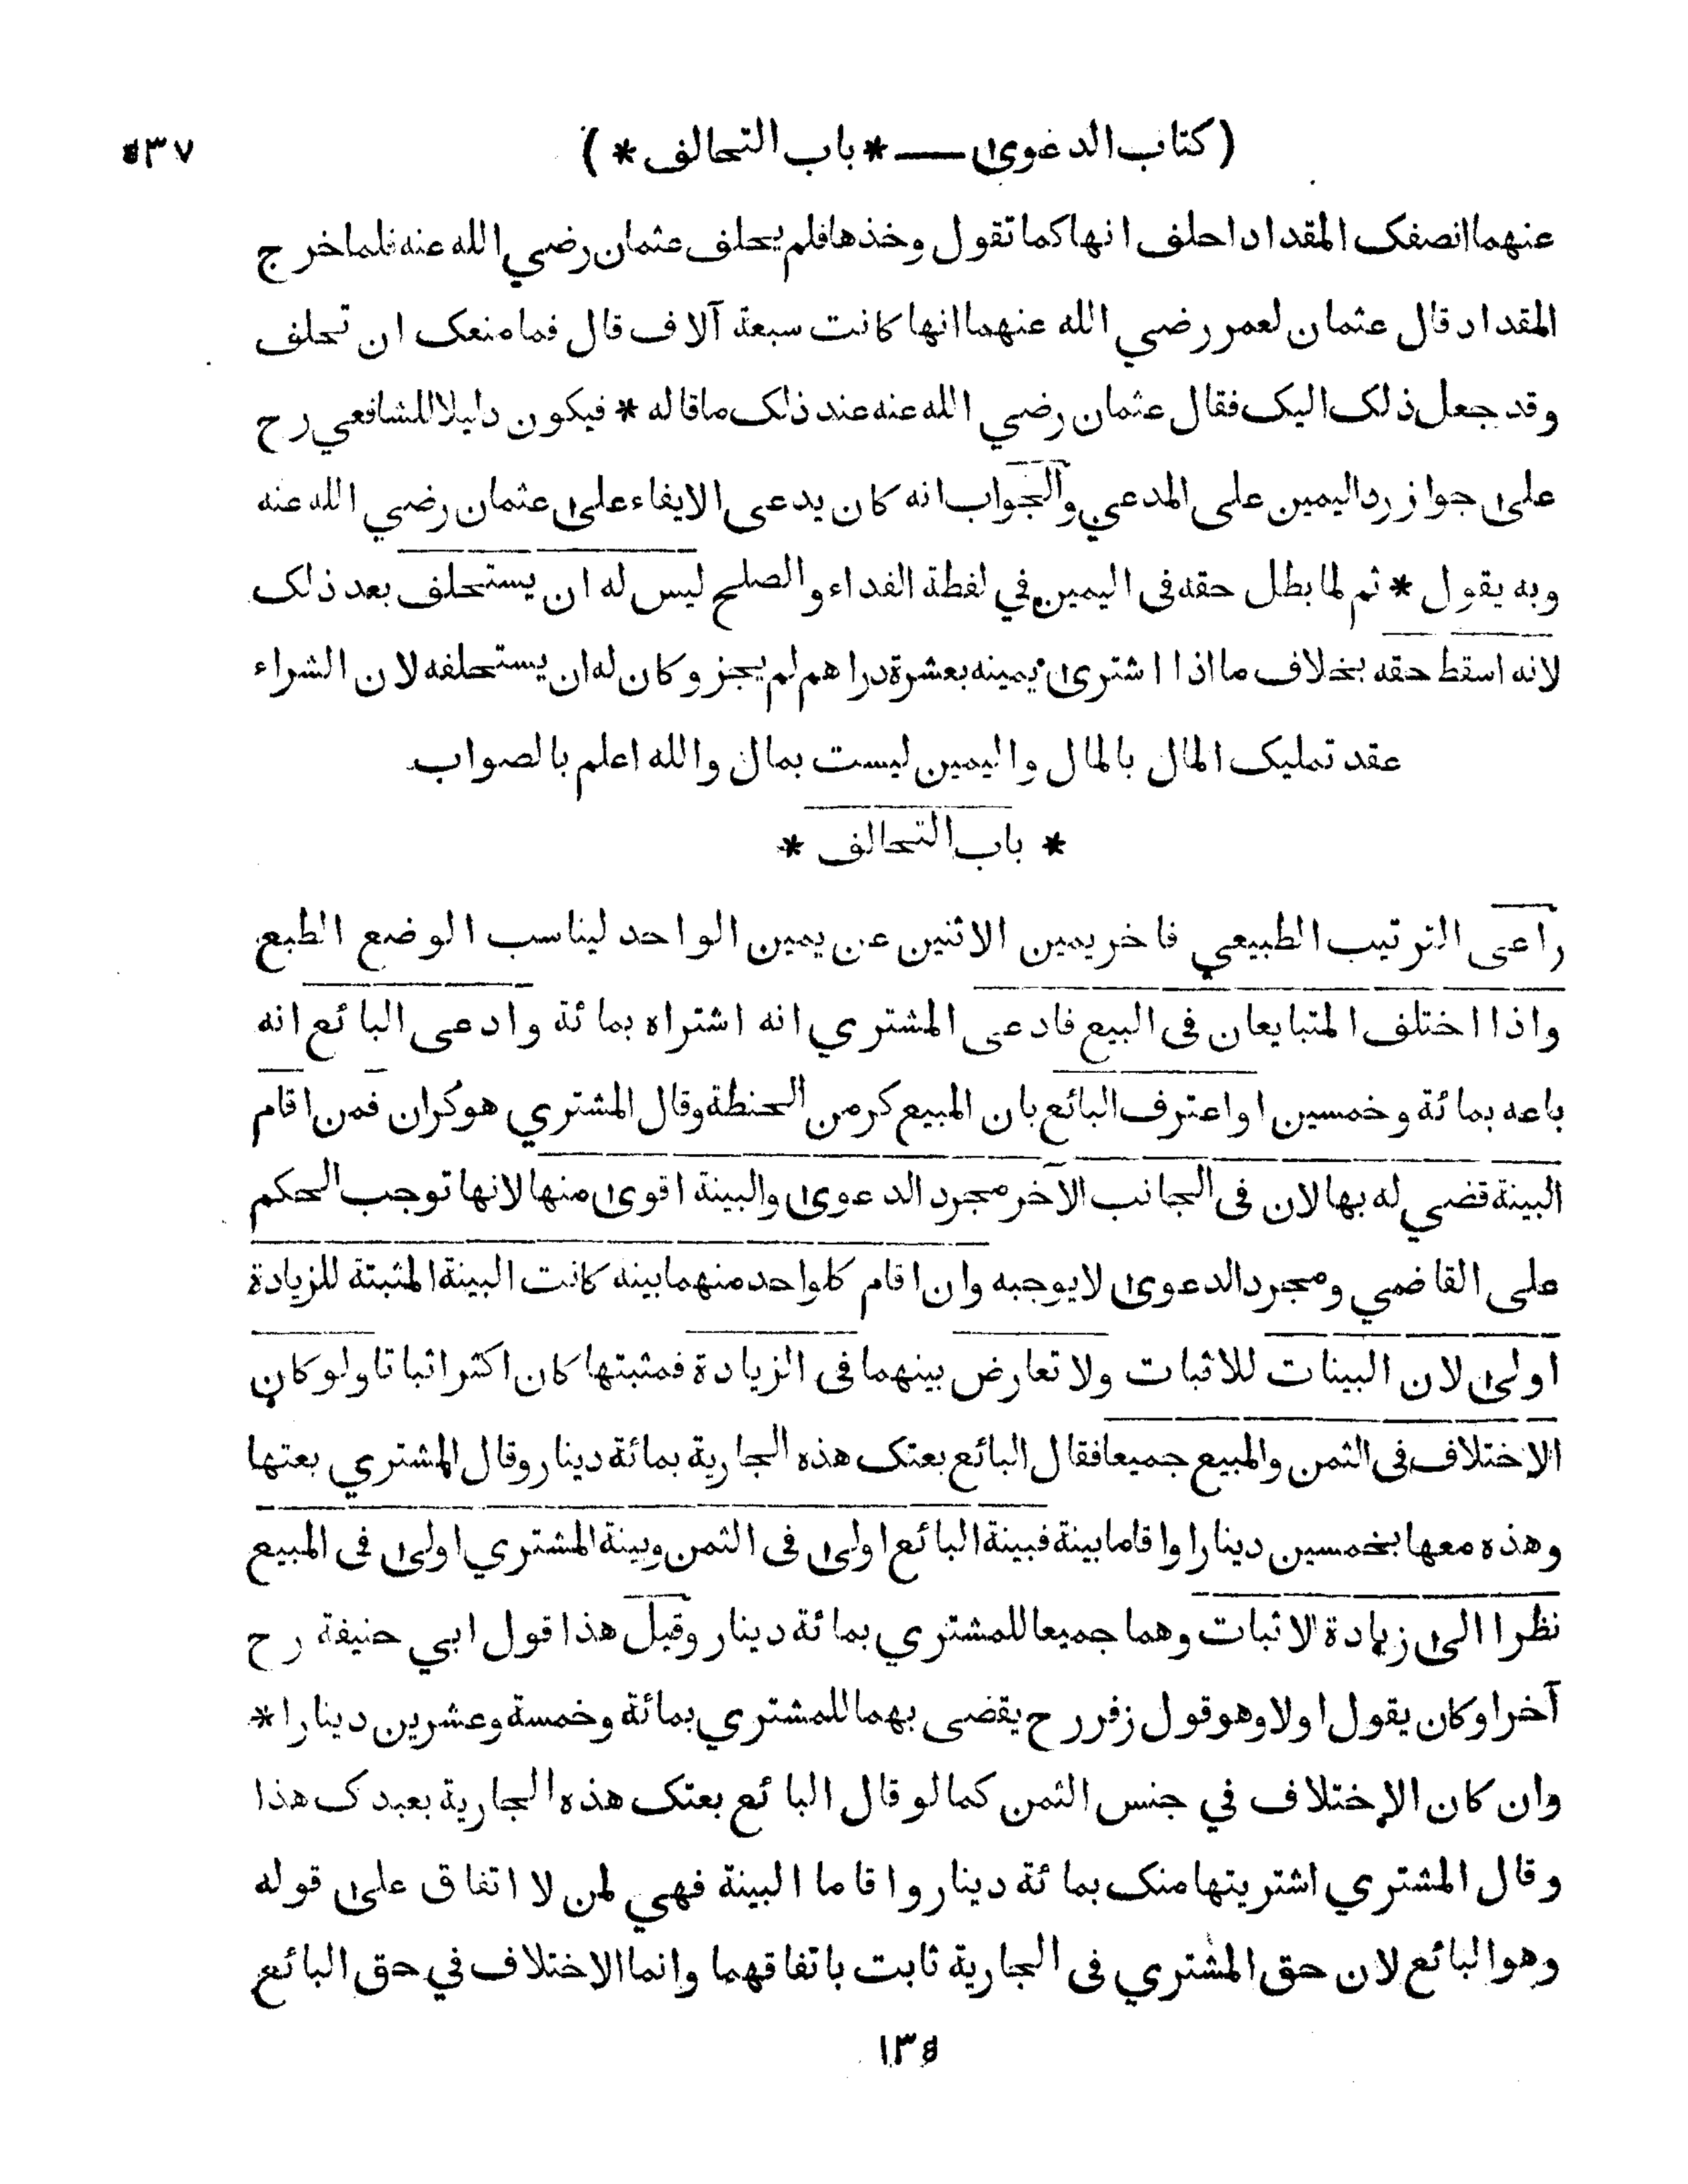 (كتاب الدعوى — * باب التحالف *) ٥٣٧
عنهما انصفك المقداد احلف انها كما تقول وخذها فلم يحلف عثمان رضي الله عنه فلما خرج
المقداد قال عثمان لعمر رضي الله عنهما انها كانت سبعة آلاف قال فما منعك ان تحلف
وقد جعل ذلك اليك فقال عثمان رضي الله عنه عند ذلك ما قاله * فيكون دليلا للشافعي رح
على جواز رد اليمين على المدعي والجواب انه كان يدعى الايفاء على عثمان رضي الله عنه
وبه يقول * ثم لما بطل حقه فى اليمين في لفظة الفداء والصلح ليس له ان يستحلف بعد ذلك
لانه اسقط حقه بخلاف ما اذا اشترى يمينه بعشرة دراهم لم يجز وكان له ان يستحلفه لان الشراء
عقد تمليك المال بالمال واليمين ليست بمال والله اعلم بالصواب
* باب التحالف *
راعى الترتيب الطبيعي فاخر يمين الاثنين عن يمين الواحد ليناسب الوضع الطبع
واذا اختلف المتبايعان فى البيع فادعى المشتري انه اشتراه بمائة وادعى البائع انه
باعه بمائة وخمسين او اعترف البائع بان المبيع كر من الحنطة وقال المشتري هو كران فمن اقام
البينة قضي له بها لان فى الجانب الآخر مجرد الدعوى والبينة اقوى منها لانها توجب الحكم
على القاضي ومجرد الدعوى لا يوجبه وان اقام كل واحد منهما بينه كانت البينة المثبتة للزيادة
اولى لان البينات للاثبات ولا تعارض بينهما فى الزيادة فمثبتها كان اكثر اثباتا ولو كان
الاختلاف فى الثمن والمبيع جميعا فقال البائع بعتك هذه الجارية بمائة دينار وقال المشتري بعتها
وهذه معها بخمسين دينارا واقاما بينة فبينة البائع اولى فى الثمن وبينة المشتري اولى فى المبيع
نظرا الى زيادة الاثبات وهما جميعا للمشتري بمائة دينار وقيل هذا قول ابي حنيفة رح
آخرا وكان يقول اولا وهو قول زفر رح يقضى بهما للمشتري بمائة وخمسة وعشرين دينارا *
وان كان الاختلاف في جنس الثمن كما لو قال البائع بعتك هذه الجارية بعبدك هذا
وقال المشتري اشتريتها منك بمائة دينار واقاما البينة فهي لمن لا اتفاق على قوله
وهو البائع لان حق المشتري فى الجارية ثابت باتفاقهما وانما الاختلاف في حق البائع
١٣٥